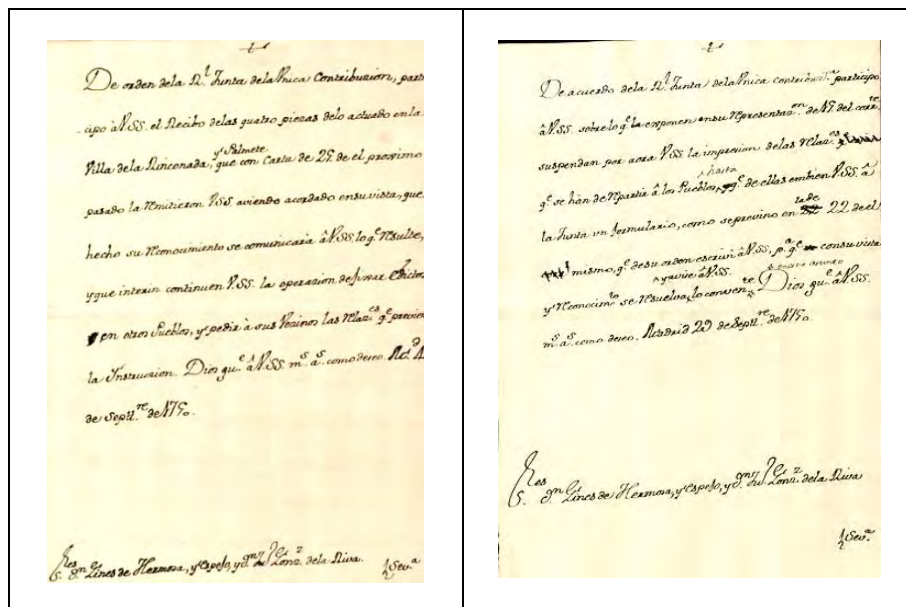 De orden dela Rl. Junta dela Vnica Contribuzion, parti
cipo à V.SS. el Recibo delas quatro piezas delo actuado en la
y Palmete
Villa dela Rinconada, que con Carta de 25 de el proximo
pasado la remitieron V.SS. aviendo acordado ensu vista, que
hecho su reconocimiento se comunicarà à V.SS. lo qe. resulte,
y que interin continuen V.SS. la operazion de
en otros Pueblos, y pedir à sus Vezinos las relazes. qe. previene
la Ynstruccion. Dios gue. à V.SS. ms. as. como deseo. Md. 4
de Septre. de 1750.
Sres. Dn. Gines de Hermosa, y Espejo, y Dn. Lorenz. dela Riva.
Seva.
De acuerdo dela Rl. Junta dela Vnica contribuzn. participo
à V.SS. sobre lo qe. exponen ensu representazn. de 15 del corrte.
suspendan por aora V.SS. la impresion delas relazes.
hasta
qe. se han de repartir à los Pueblos, qe. de ellas embien V.SS. à
la Junta vn formulario, como seprevino en 22 de el
tarde
mismo, qe. desu orden escriví à V.SS. pa. qe. consu vista
y avise à V.SS.
y reconocimto. se resuelva lo convente. Dios gue. à V.SS.
ms. as. como deseo. Madrid 29 de Septre. de 1750.
Sres. Dn. Gines de Hermosa, y Espejo, y Dn. Lorenz. dela Riva
Seva.